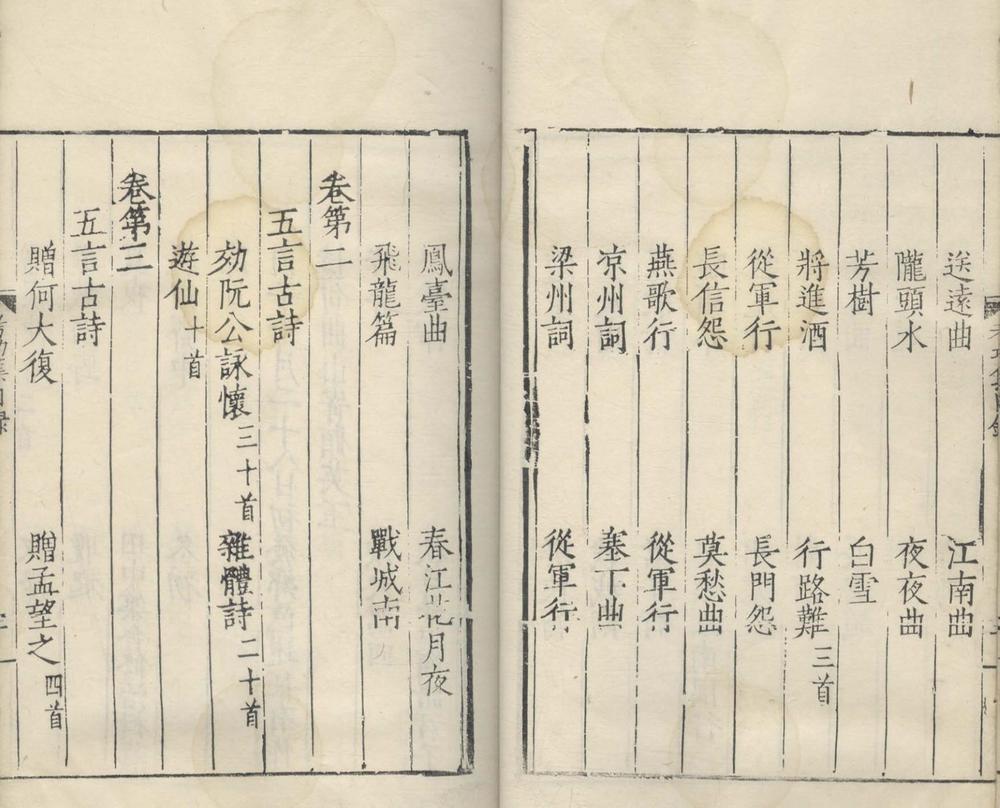 送遠曲 江南曲
隴頭水 夜夜曲
芳樹 白雪
將進酒 行路難三首
從軍行 長門怨
長信怨 莫愁曲
燕歌行 從軍行
涼州詞 塞下曲
梁州詞 從軍行
鳳臺曲 春江花月夜
飛龍篇 戰城南
卷第二
五言古詩
効阮公詠懷三十首 雜體詩二十首
遊仙十首
卷第三
五言古詩
贈何大復 贈孟望之四首